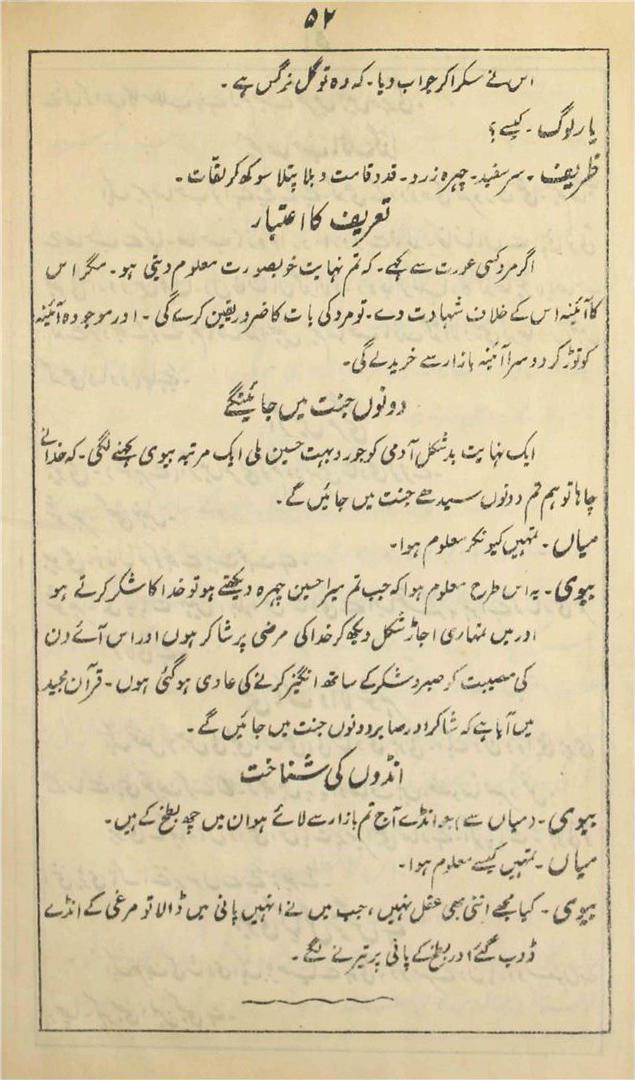 ۵۲
اس نے مسکرا کر جواب دیا۔ کہ وہ تو گل نرگس ہے۔
یار لوگ۔ کیسے؟
ظریف۔ سر سفید۔ چہرہ زرد۔ قد و قامت دبلا پتلا سوکھ کر لقّات۔
تعریف کا اعتبار
اگر مرد کسی عورت سے کہے۔ کہ تم نہایت خوبصورت معلوم دیتی ہو۔ مگر اس
کا آئینہ اس کے خلاف شہادت دے۔ تو مرد کی بات کا ضرور یقین کرے گی ۔ اور موجودہ آئینہ
کو توڑ کر دوسرا آئینہ بازار سے خرید لے گی۔
دونوں جنت میں جائینگے
ایک نہایت بدشکل آدمی کو جورو بہت حسین ملی ایک مرتبہ بیوی کہنے لگی۔ کہ خدا نے
چاہا تو ہم تم دونوں سیدھے جنت میں جائیں گے۔
میاں۔ تمہیں کیونکر معلوم ہوا۔
بیوی۔ یہ اس طرح معلوم ہوا کہ جب تم میرا حسین چہرہ دیکھتے ہو تو خدا کا شکر کرتے ہو
اور میں تمہاری اجاڑ شکل دیکھ کر خدا کی مرضی پر شاکر ہوں اور اس آئے دن
کی مصیبت کو صبر و شکر کے ساتھ انگیز کرنے کی عادی ہو گئی ہوں۔ قرآن مجید
میں آیا ہے کہ شاکر اور صابر دونوں جنت میں جائیں گے۔
انڈوں کی شناخت
بیوی۔ (میاں سے) جو انڈے آج تم بازار سے لائے ہو ان میں چھ بطخ کے ہیں۔
میاں۔ تمہیں کیسے معلوم ہوا۔
بیوی۔ کیا مجھے اتنی بھی عقل نہیں، جب میں نے انہیں پانی میں ڈالا تو مرغی کے انڈے
ڈوب گئے اور بطخ کے پانی پر تیرنے لگے۔